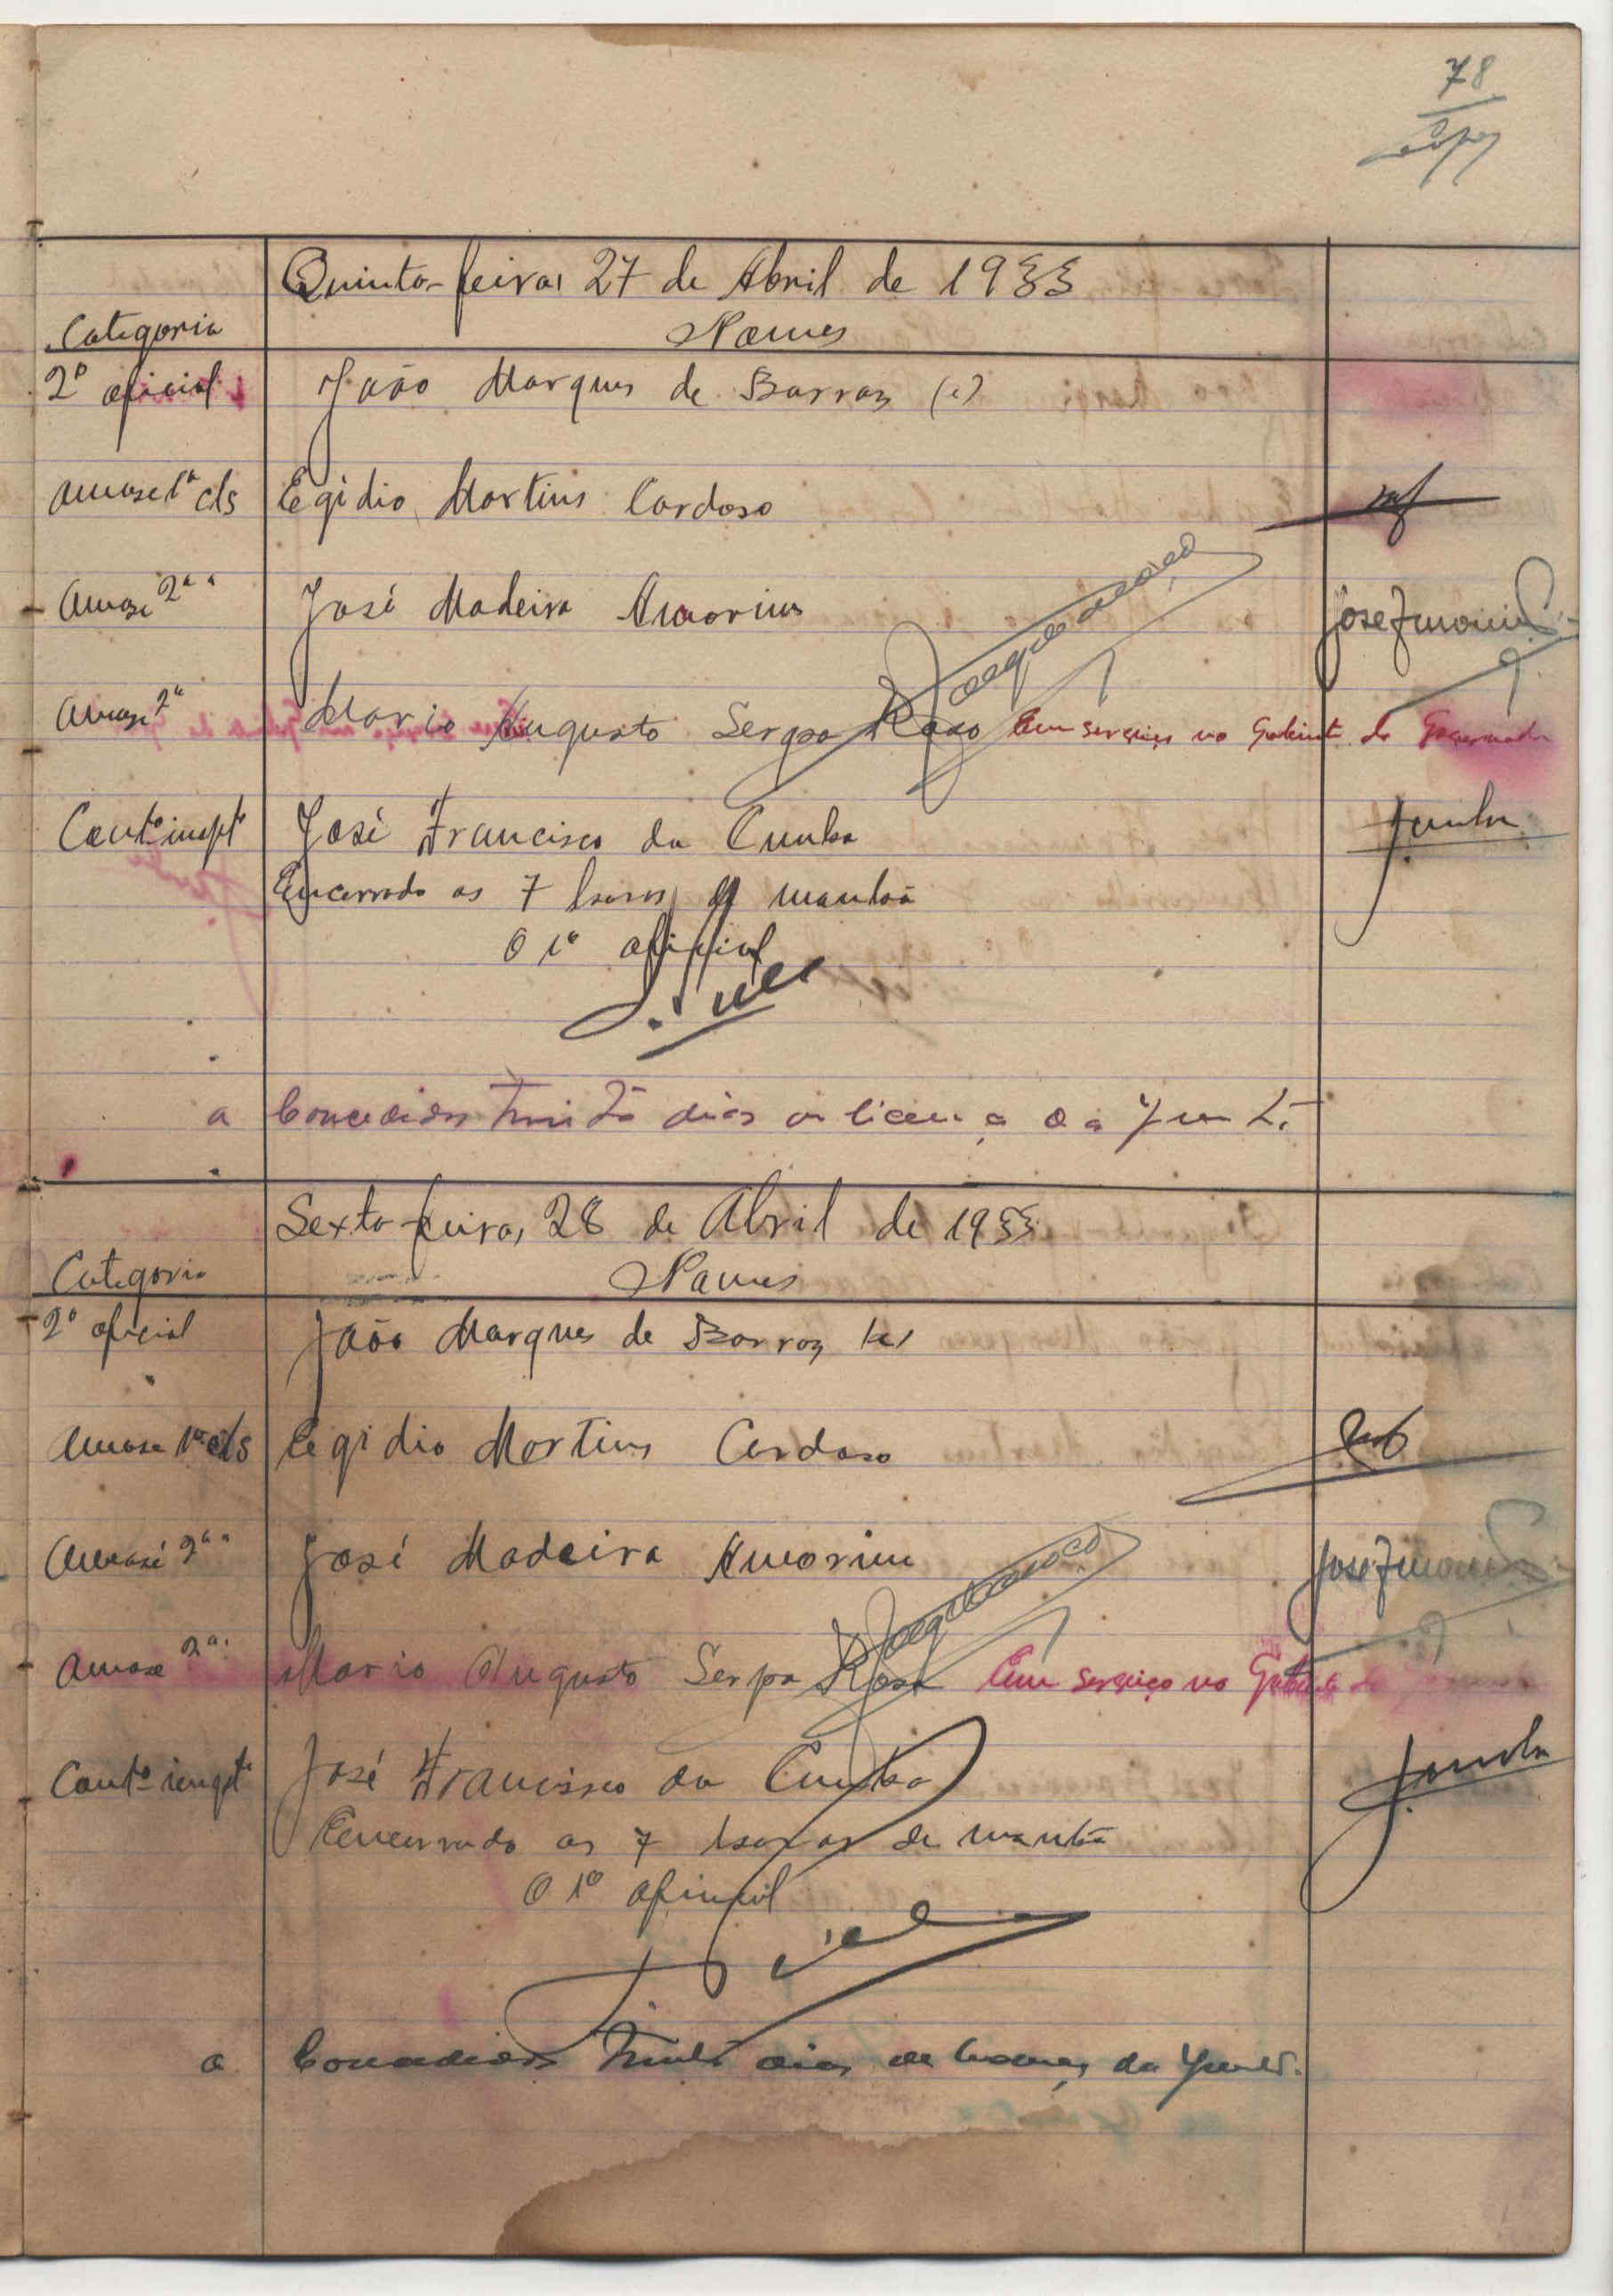 78
Quinta-feira, 27 de Abril de 1933
Categoria Nomes
2º oficial João Marques de Barros (a)
Amase 1ª cls Egidio Martins Cardoso
Amase 2ª " José Madeira Amorim José Amorim
Amase 2ª Mario Augusto Serpa Rosa Em serviço no Gabinete do Governador
Contº inaptº José Francisco da Cunha Cunha
Encerrado as 7 horas da manhã
O 1º oficial
a Concedidos trinta dias de licença da Junta
Sexta-feira, 28 de Abril de 1933
Categoria Nomes
2º oficial João Marques de Barros (a)
Amase 1ª cls Egidio Martins Cardoso
Amase 2ª " José Madeira Amorim José Amorim
Amase 2ª " Mario Augusto Serpa Rosa Em serviço no Gabinete do
Contº José Francisco da Cunha Cunha
Encerrado as 7 horas da manhã
O 1º oficial
a Concedidos trinta dias de licença da Junta.